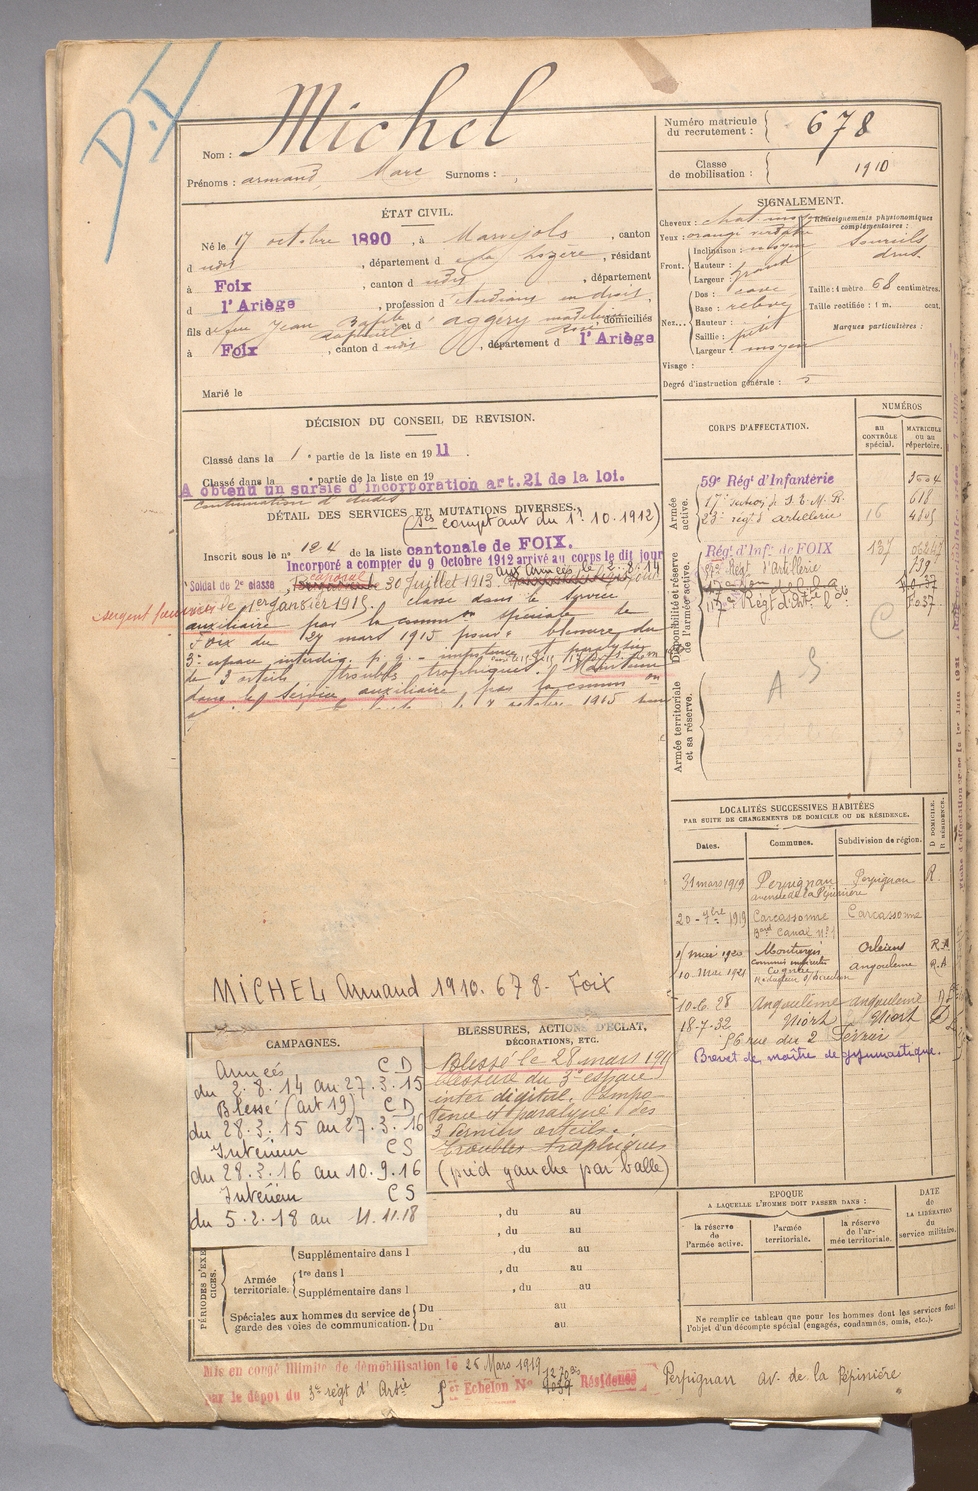 D.I
Nom : Michel
Prénoms : armand, Marc Surnoms : ,
Numéro matricule du recrutement : 678
Classe de mobilisation : 1910
ÉTAT CIVIL.
Né le 17 octobre 1890, à Marvejols, canton
d udis, département d e la lozère, résidant
à Foix, canton d udis, département
d l'Ariège, profession d'étudiant en droit,
fils de feu Jean Baptiste Raphael et d' aggery madeleine domiciliés
à Foix, canton d udis, département d l'Ariège
Marié le
SIGNALEMENT.
Cheveux : chat. moy
Yeux : orangé verdatre
Front. Inclinaison : moyen
Hauteur :
Largeur : grand
Nez... Dos : cave
Base : relevé
Hauteur :
Saillie : petit
Largeur : moyen
Visage :
Renseignements physionomiques complémentaires :
Sourcils drus.
Taille : 1 mètre 68 centimètres.
Taille rectifiée : 1 m. cent.
Marques particulières :
Degré d'instruction générale : 5
DÉCISION DU CONSEIL DE REVISION.
Classé dans la 1e partie de la liste en 1911.
Classé dans la e partie de la liste en 19
A obtenu un sursis d'incorporation art. 21 de la loi.
continuation d'études
DÉTAIL DES SERVICES ET MUTATIONS DIVERSES.
(Ses comptant du 1er. 10. 1912)
Inscrit sous le n° 124 de la liste cantonale de FOIX.
Incorporé à compter du 9 Octobre 1912 arrivé au corps le dit jour
Soldat de 2e classe, caporal 30 Juillet 1913 aux Armées le 2.8.14
sergent fourrier le 1er Janvier 1915. classé dans le service
auxiliaire par la common spéciale de
Foix du 27 mars 1915 pour blessure du
3e espace interdig. p. g. - impotence et paralysie
de 3 orteils troubles trophiques. Maintenu
dans le service auxiliaire par la common
octobre 1915
MICHEL Armand 1910. 678 - Foix
CORPS D'AFFECTATION.
NUMÉROS
au CONTRÔLE spécial.
MATRICULE ou au répertoire.
Armée active.
59e Régt d'Infanterie
17e section d S. E. M. R. 618
23e régt d'artillerie 16
Disponibilité et réserve de l'armée active.
Régt d'Infie de FOIX 137
Régt d'Artillerie
117e Régt d'Int.
C
Armée territoriale et sa réserve.
A S
LOCALITÉS SUCCESSIVES HABITÉES
PAR SUITE DE CHANGEMENTS DE DOMICILE OU DE RÉSIDENCE.
Dates. Communes. Subdivision de région. D DOMICILE. R RÉSIDENCE.
31 mars 1919 Perpignan Perpignan R.
avenue de la Pépinière
20 - 9bre 1919 Carcassonne Carcassonne
Bard Canal N° 1
1/ mai 1920 Montargis Orléans R.A
10. Mai 1921 Cognac angouleme R.A
10.6.28 Angoulême angouleme D
18-7.32 Niort Niort D
56 rue du 24 Février
Brevet de maître de gymnastique.
CAMPAGNES.
Armées C D
du 2.8.14 au 27.3.15
Blessé (art 19) C D
du 28.3.15 au 27.3.16
Intérieur C S
du 28.3.16 au 10.9.16
Intérieur C S
du 5.2.18 au 11.11.18
BLESSURES, ACTIONS D'ÉCLAT, DÉCORATIONS, ETC.
Blessé le 28 mars 191
blessure du 3e espace
inter digital. Impo-
tence et paralysie des
3 derniers orteils.
troubles trophiques
(pied gauche par balle)
PÉRIODES D'EXERCICES.
, du au
, du au
Supplémentaire dans l , du au
Armée territoriale. 1re dans l , du au
Supplémentaire dans l , du au
Spéciales aux hommes du service de garde des voies de communication. Du au
Du au
EPOQUE
A LAQUELLE L'HOMME DOIT PASSER DANS :
la réserve de l'armée active.
l'armée territoriale.
la réserve de l'armée territoriale.
DATE de LA LIBÉRATION du service militaire.
Ne remplir ce tableau que pour les hommes dont les services font l'objet d'un décompte spécial (engagés, condamnés, omis, etc.).
Mis en congé illimité de démobilisation le 26 Mars 1919
par le dépôt du 3e régt d' Artie Echelon N° Résidence Perpignan av. de la Pépinière